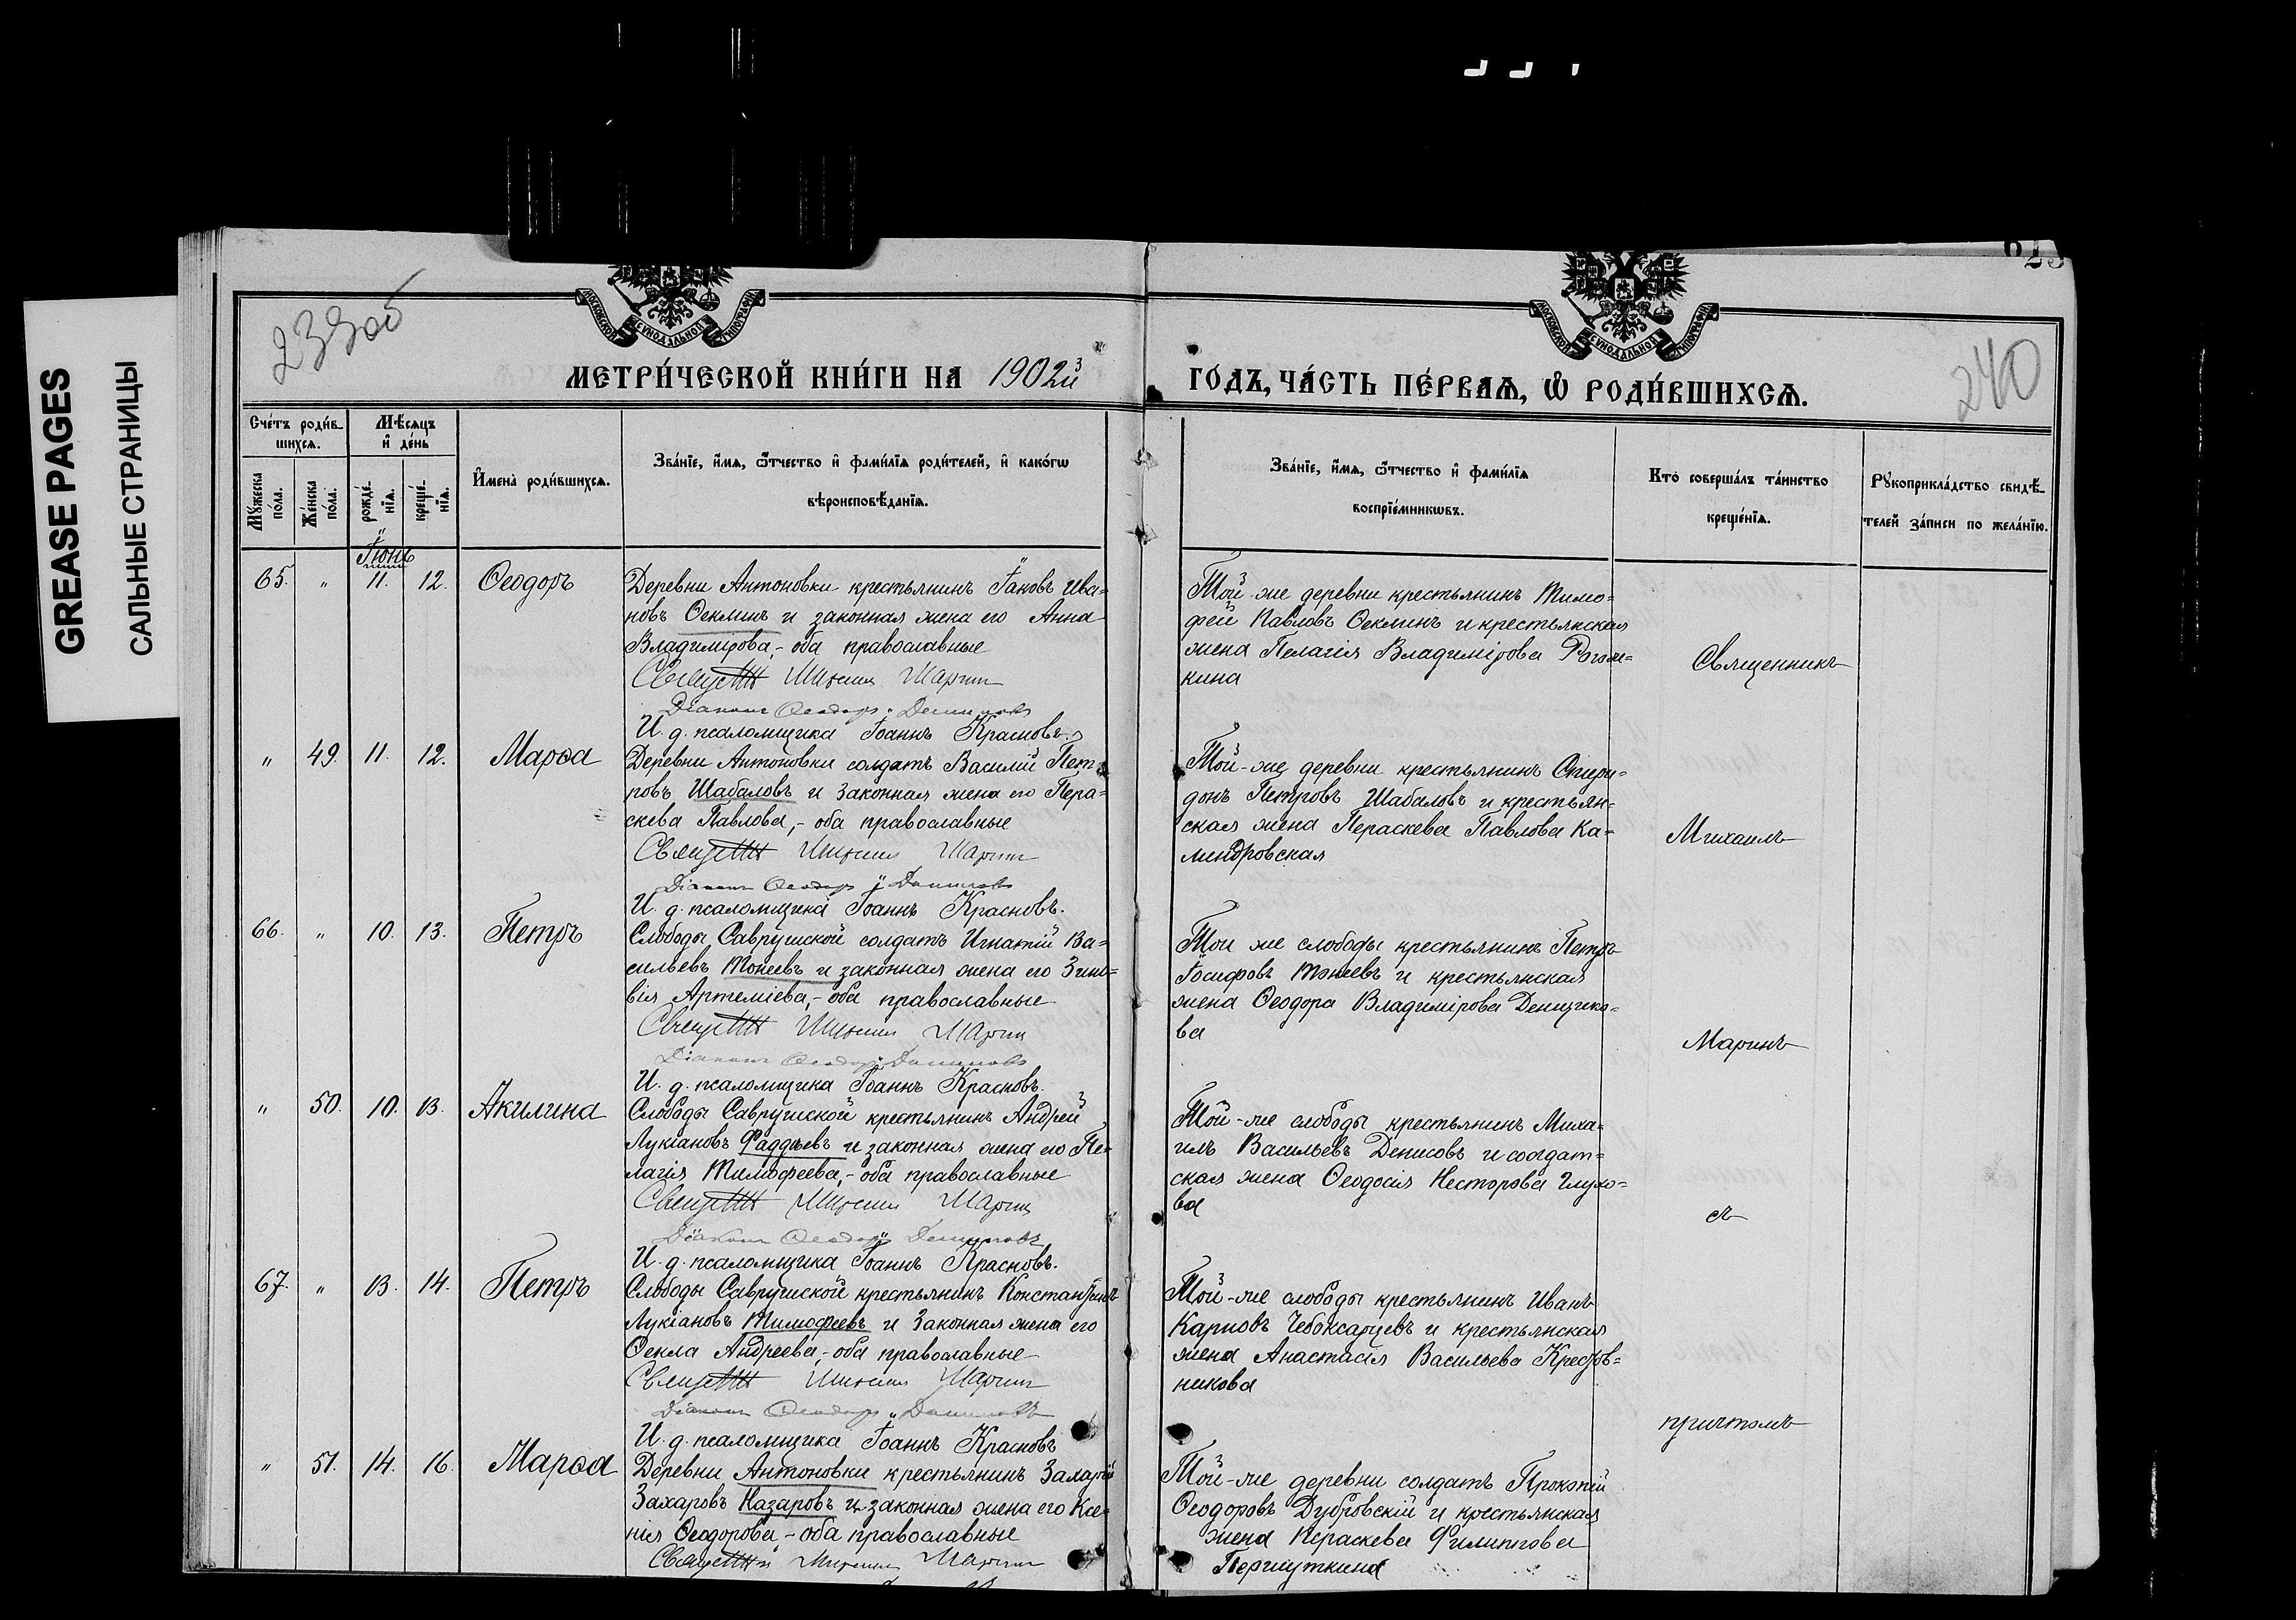 GREASE PAGES
САЛЬНЫЕ СТРАНИЦЫ
МОСКОВСКОЙ СѴНОДАЛЬНОЙ ТИПОГРАФІИ
МОСКОВСКОЙ СѴНОДАЛЬНОЙ ТИПОГРАФІИ
240
МЕТРИ́ЧЕСКОЙ КНИ́ГИ НА 1902й
ГО́ДЪ, ЧА́СТЬ ПЕ́РВАѦ, Ѽ РОДИ́ВШИХСѦ.
Сче́тъ роди́в-
шихсѧ.
Мѣ́сѧцъ
и҆ де́нь
Мꙋ́жеска
по́ла.
Же́нска
по́ла.
рожде́-
нїѧ.
креще́-
нїѧ.
И҆мена̀ роди́вшихсѧ.
Зва́нїе, и҆́мѧ, ѻ҆́тчество и҆ фами́лїѧ роди́телей, и҆ како́гѡ
вѣроисповѣ́данїѧ.
Зва́нїе, и҆́мѧ, ѻ҆́тчество и҆ фами́лїѧ
воспрїе́мникѡвъ.
Кто̀ соверша́лъ та́инство
креще́нїѧ.
Рꙋкоприкла́дство свидѣ́-
телей за́писи по жела́нїю.
Іюнь
65. " 11. 12. Ѳеодоръ
Деревни Антоновки крестьянинъ Іаковъ Ива=
новъ Ѳеклинъ и законная жена его Анна
Владимірова,- оба православные
Священ Михаилъ Маринъ
Діаконъ Ѳеодоръ Данииловъ
И. д. псаломщика Іоаннъ Красновъ.
Той-же деревни крестьянинъ Тимо=
фей Павловъ Ѳеклинъ и крестьянская
жена Пелагія Владимірова Рогож=
кина
Священникъ
" 49. 11. 12. Марѳа
Деревни Антоновки солдатъ Василій Пет
ровъ Шабаловъ и законная жена его Пара=
скева Павлова,- оба православные
Священ Михаилъ Маринъ
Діаконъ Ѳеодоръ Данииловъ
И. д. псаломщика Іоаннъ Красновъ.
Той-же деревни крестьянинъ Спири=
донъ Петровъ Шабаловъ и крестьян=
ская жена Параскева Павлова Ка=
Михаилъ
66. " 10. 13. Петръ
Слободы Саврушской солдатъ Игнатій Ва=
сильевъ Мокеевъ и законная жена его Зино=
вія Артеміева,- оба православные
Священ Михаилъ Маринъ
Діаконъ Ѳеодоръ Данииловъ
И. д. псаломщика Іоаннъ Красновъ.
Той же слободы крестьянинъ Петръ
Іосифовъ Мокеевъ и крестьянская
жена Ѳеодора Владимірова Денщико=
ва
Маринъ
" 50. 10. 13. Акилина
Слободы Саврушской крестьянинъ Андрей
Лукіановъ Фаддѣевъ и законная жена его Пе=
лагія Тимофеева,- оба православные
Священ Михаилъ Маринъ
Діаконъ Ѳеодоръ Данииловъ
И. д. псаломщика Іоаннъ Красновъ.
Той-же слободы крестьянинъ Миха=
илъ Васильевъ Денисовъ и солдат=
ская жена Ѳеодосія Несторова Глухо=
ва
съ
67. " 13. 14. Петръ
Слободы Саврушской крестьянинъ Константинъ
Лукіановъ Тимофеевъ и законная жена его
Ѳекла Андреева,- оба православные
Священ Михаилъ Маринъ
Діаконъ Ѳеодоръ Данииловъ
И. д. псаломщика Іоаннъ Красновъ
Той-же слободы крестьянинъ Иванъ
Карповъ Чебоксарцевъ и крестьянская
жена Анастасія Васильева Крестов=
никова
причтомъ
" 51. 14. 16. Марѳа
Деревни Антоновки крестьянинъ Захарій
Захаровъ Назаровъ и законная жена его Ксе=
нія Ѳеодорова,- оба православные
Священ Михаилъ Маринъ
Той-же деревни солдатъ Прокопій
Ѳеодоровъ Дубровскій и крестьянская
жена Параскева Филиппова
Першуткина